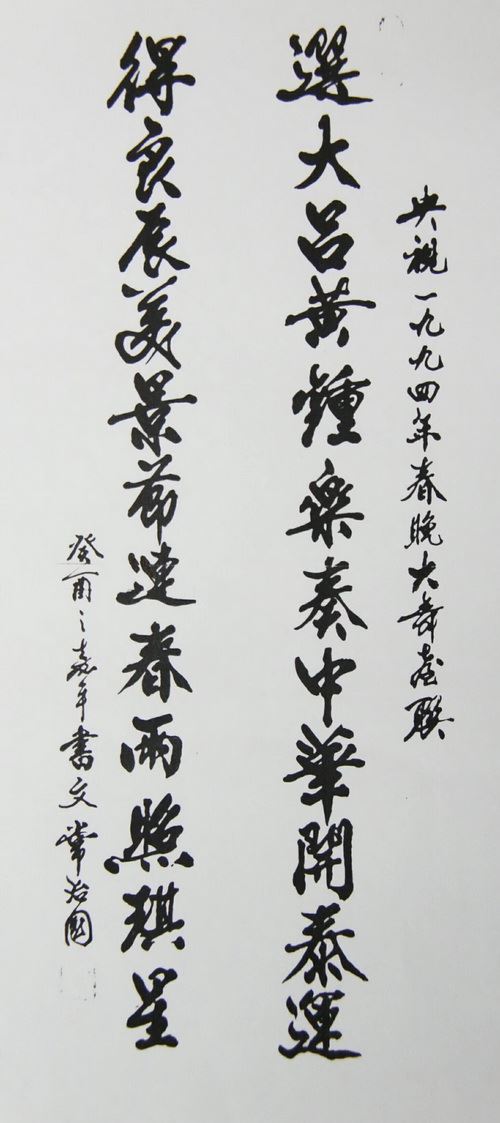 央視一九九四年春晚大舞臺聯
選大呂黄鍾樂奏中華開泰運
得良辰美景節連春雨照琪星
癸酉之嘉平書文常治國